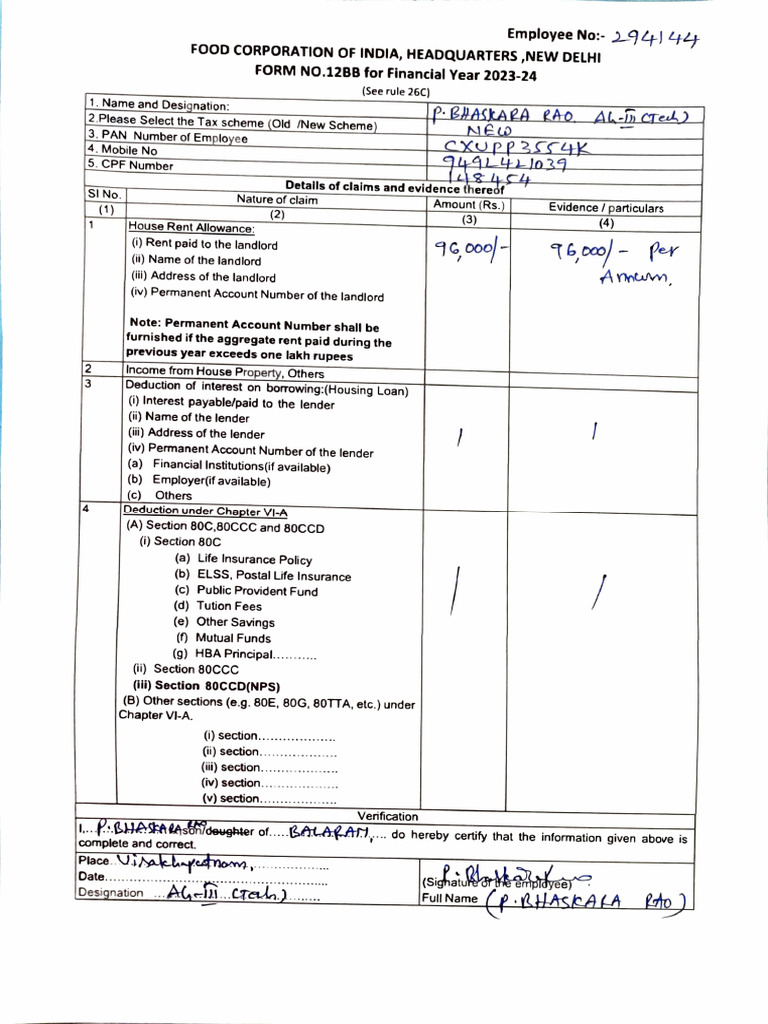 Employee No:- 294144
FOOD CORPORATION OF INDIA, HEADQUARTERS ,NEW DELHI
FORM NO.12BB for Financial Year 2023-24
(See rule 26C)
1. Name and Designation: P. BHASKARA RAO. AG-III (Tech)
2.Please Select the Tax scheme (Old /New Scheme) NEW
3. PAN Number of Employee CXUPP3554K
4. Mobile No 9491421039
5. CPF Number 148454
Details of claims and evidence thereof
Sl No. Nature of claim Amount (Rs.) Evidence / particulars
(1) (2) (3) (4)
1 House Rent Allowance:
(i) Rent paid to the landlord 96,000/- 96,000/- Per
(ii) Name of the landlord
(iii) Address of the landlord Annum.
(iv) Permanent Account Number of the landlord
Note: Permanent Account Number shall be
furnished if the aggregate rent paid during the
previous year exceeds one lakh rupees
2 Income from House Property, Others
3 Deduction of interest on borrowing:(Housing Loan)
(i) Interest payable/paid to the lender
(ii) Name of the lender
(iii) Address of the lender / /
(iv) Permanent Account Number of the lender
(a) Financial Institutions(if available)
(b) Employer(if available)
(c) Others
4 Deduction under Chapter VI-A
(A) Section 80C,80CCC and 80CCD
(i) Section 80C
(a) Life Insurance Policy
(b) ELSS, Postal Life Insurance
(c) Public Provident Fund / /
(d) Tution Fees
(e) Other Savings
(f) Mutual Funds
(g) HBA Principal...........
(ii) Section 80CCC
(iii) Section 80CCD(NPS)
(B) Other sections (e.g. 80E, 80G, 80TTA, etc.) under
Chapter VI-A.
(i) section...................
(ii) section...................
(iii) section...................
(iv) section...................
(v) section...................
Verification
I,... P. BHASKARA RAO son/daughter of..... BALARAM,.... do hereby certify that the information given above is
complete and correct.
Place Visakhapatnam,
Date.......................................................
Designation ... AG-III (Tech.) .........
P. Bhaskara Rao
(Signature of the employee)
Full Name (P. BHASKARA RAO)